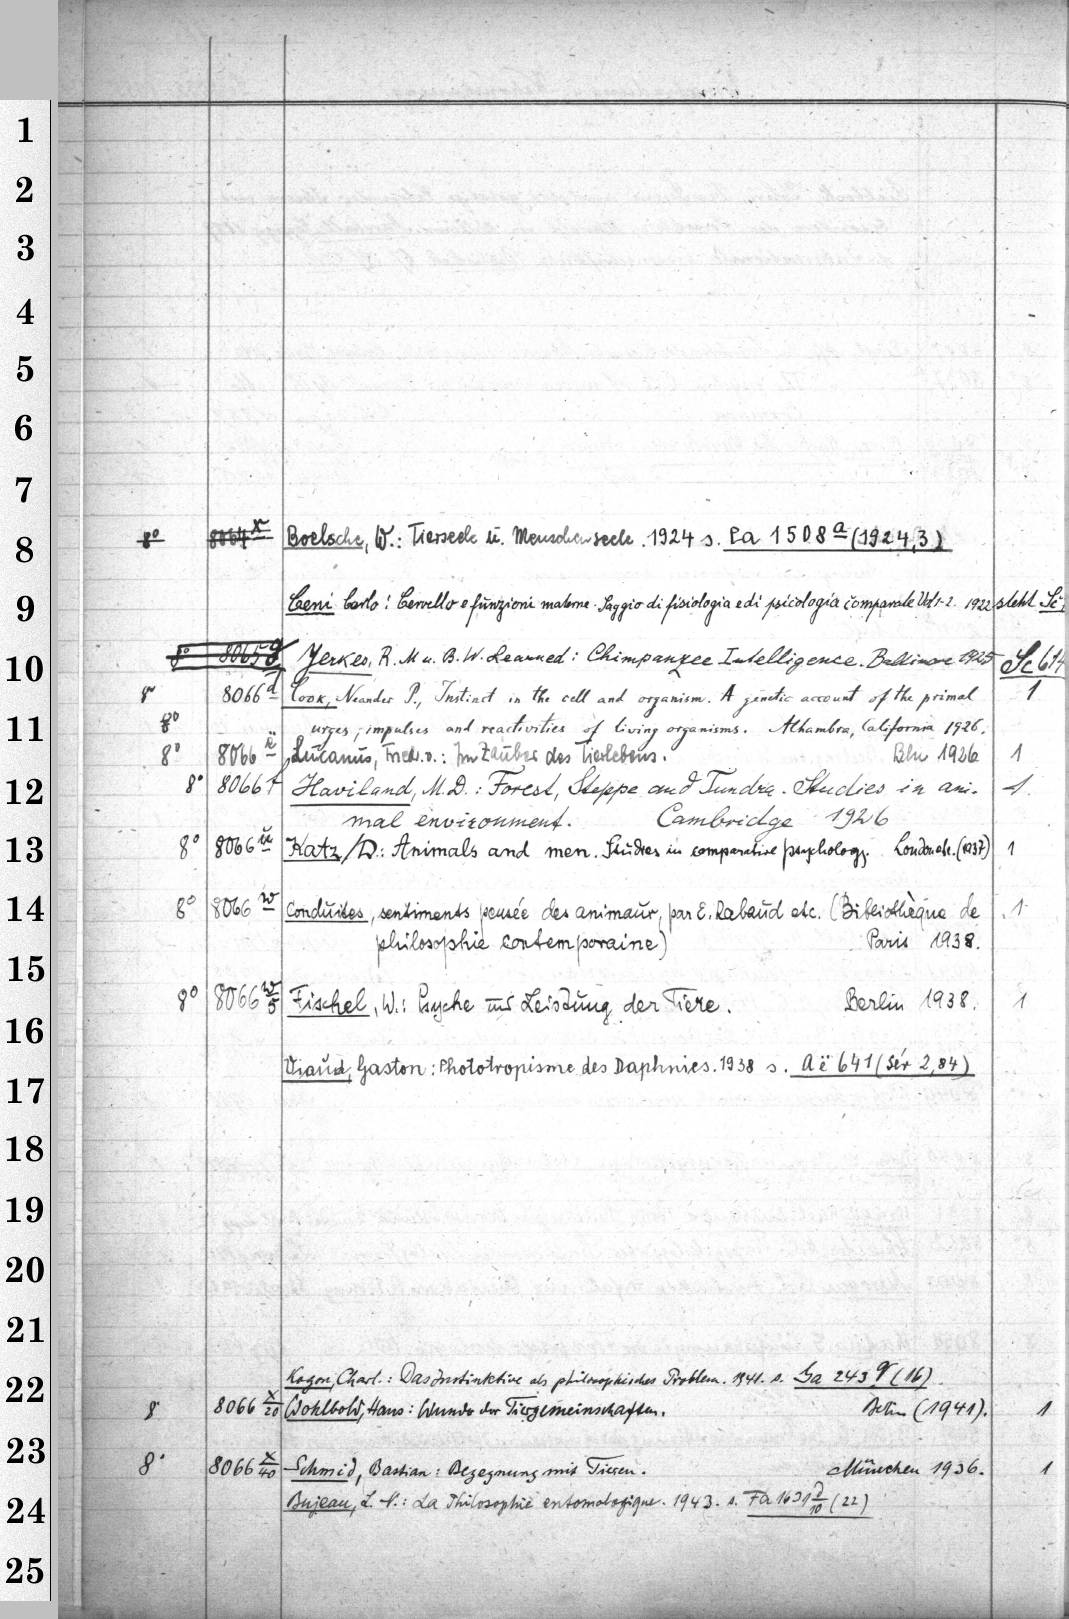 1
2
3
4
5
6
7
8
8° 8064 x Boelsche, W.: Tierseele u. Menschenseele. 1924 s. La 1508 a (1924,3)
9
Ceni Carlo: Cervello e funzioni materne. Saggio di fisiologia e di psicologia comparate Vol 1-2. 1922 steht Sc
10
8° 8065 g Yerkes, R. M u. B. W. Learned: Chimpanzee Intelligence. Baltimore 1925 Sc 614
8° 8066 d Cook, Neander P., Instinct in the cell and organism. A genetic account of the primal 1
11
8° urges, impulses and reactivities of living organisms. Alhambra, California 1926.
8° 8066 Lucanus, Fried. v.: Im Zauber des Tierlebens. Bln 1926 1
12
8° 8066 t Haviland, M. D.: Forest, Steppe and Tundra. Studies in ani- 1
mal environment. Cambridge 1926
13
8° 8066 u Katz, D.: Animals and men. Studies in comparative psychology. London etc. (1937) 1
14
8° 8066 w Conduites, sentiments pensée des animaux, par E. Rabaud etc. (Bibliothèque de 1
philosophie contemporaine) Paris 1938.
15
8° 8066 w/5 Fischel, W.: Psyche und Leistung der Tiere. Berlin 1938. 1
16
Viaud, Gaston: Phototropisme des Daphnies. 1938 s. Aë 641 (Sér 2,84)
17
18
19
20
21
22
Kogon, Charl.: Das Instinktive als philosophisches Problem. 1941. s. Ga 243 q (16)
8° 8066 x/20 Wohlbold, Hans: Wunder der Tiergemeinschaften. Berlin (1941). 1
23
8° 8066 x/40 Schmid, Bastian: Begegnung mit Tieren. München 1936. 1
24
Bujeau, L. V.: La Philosophie entomologique. 1943. s. Fa 1631 d/10 (22)
25